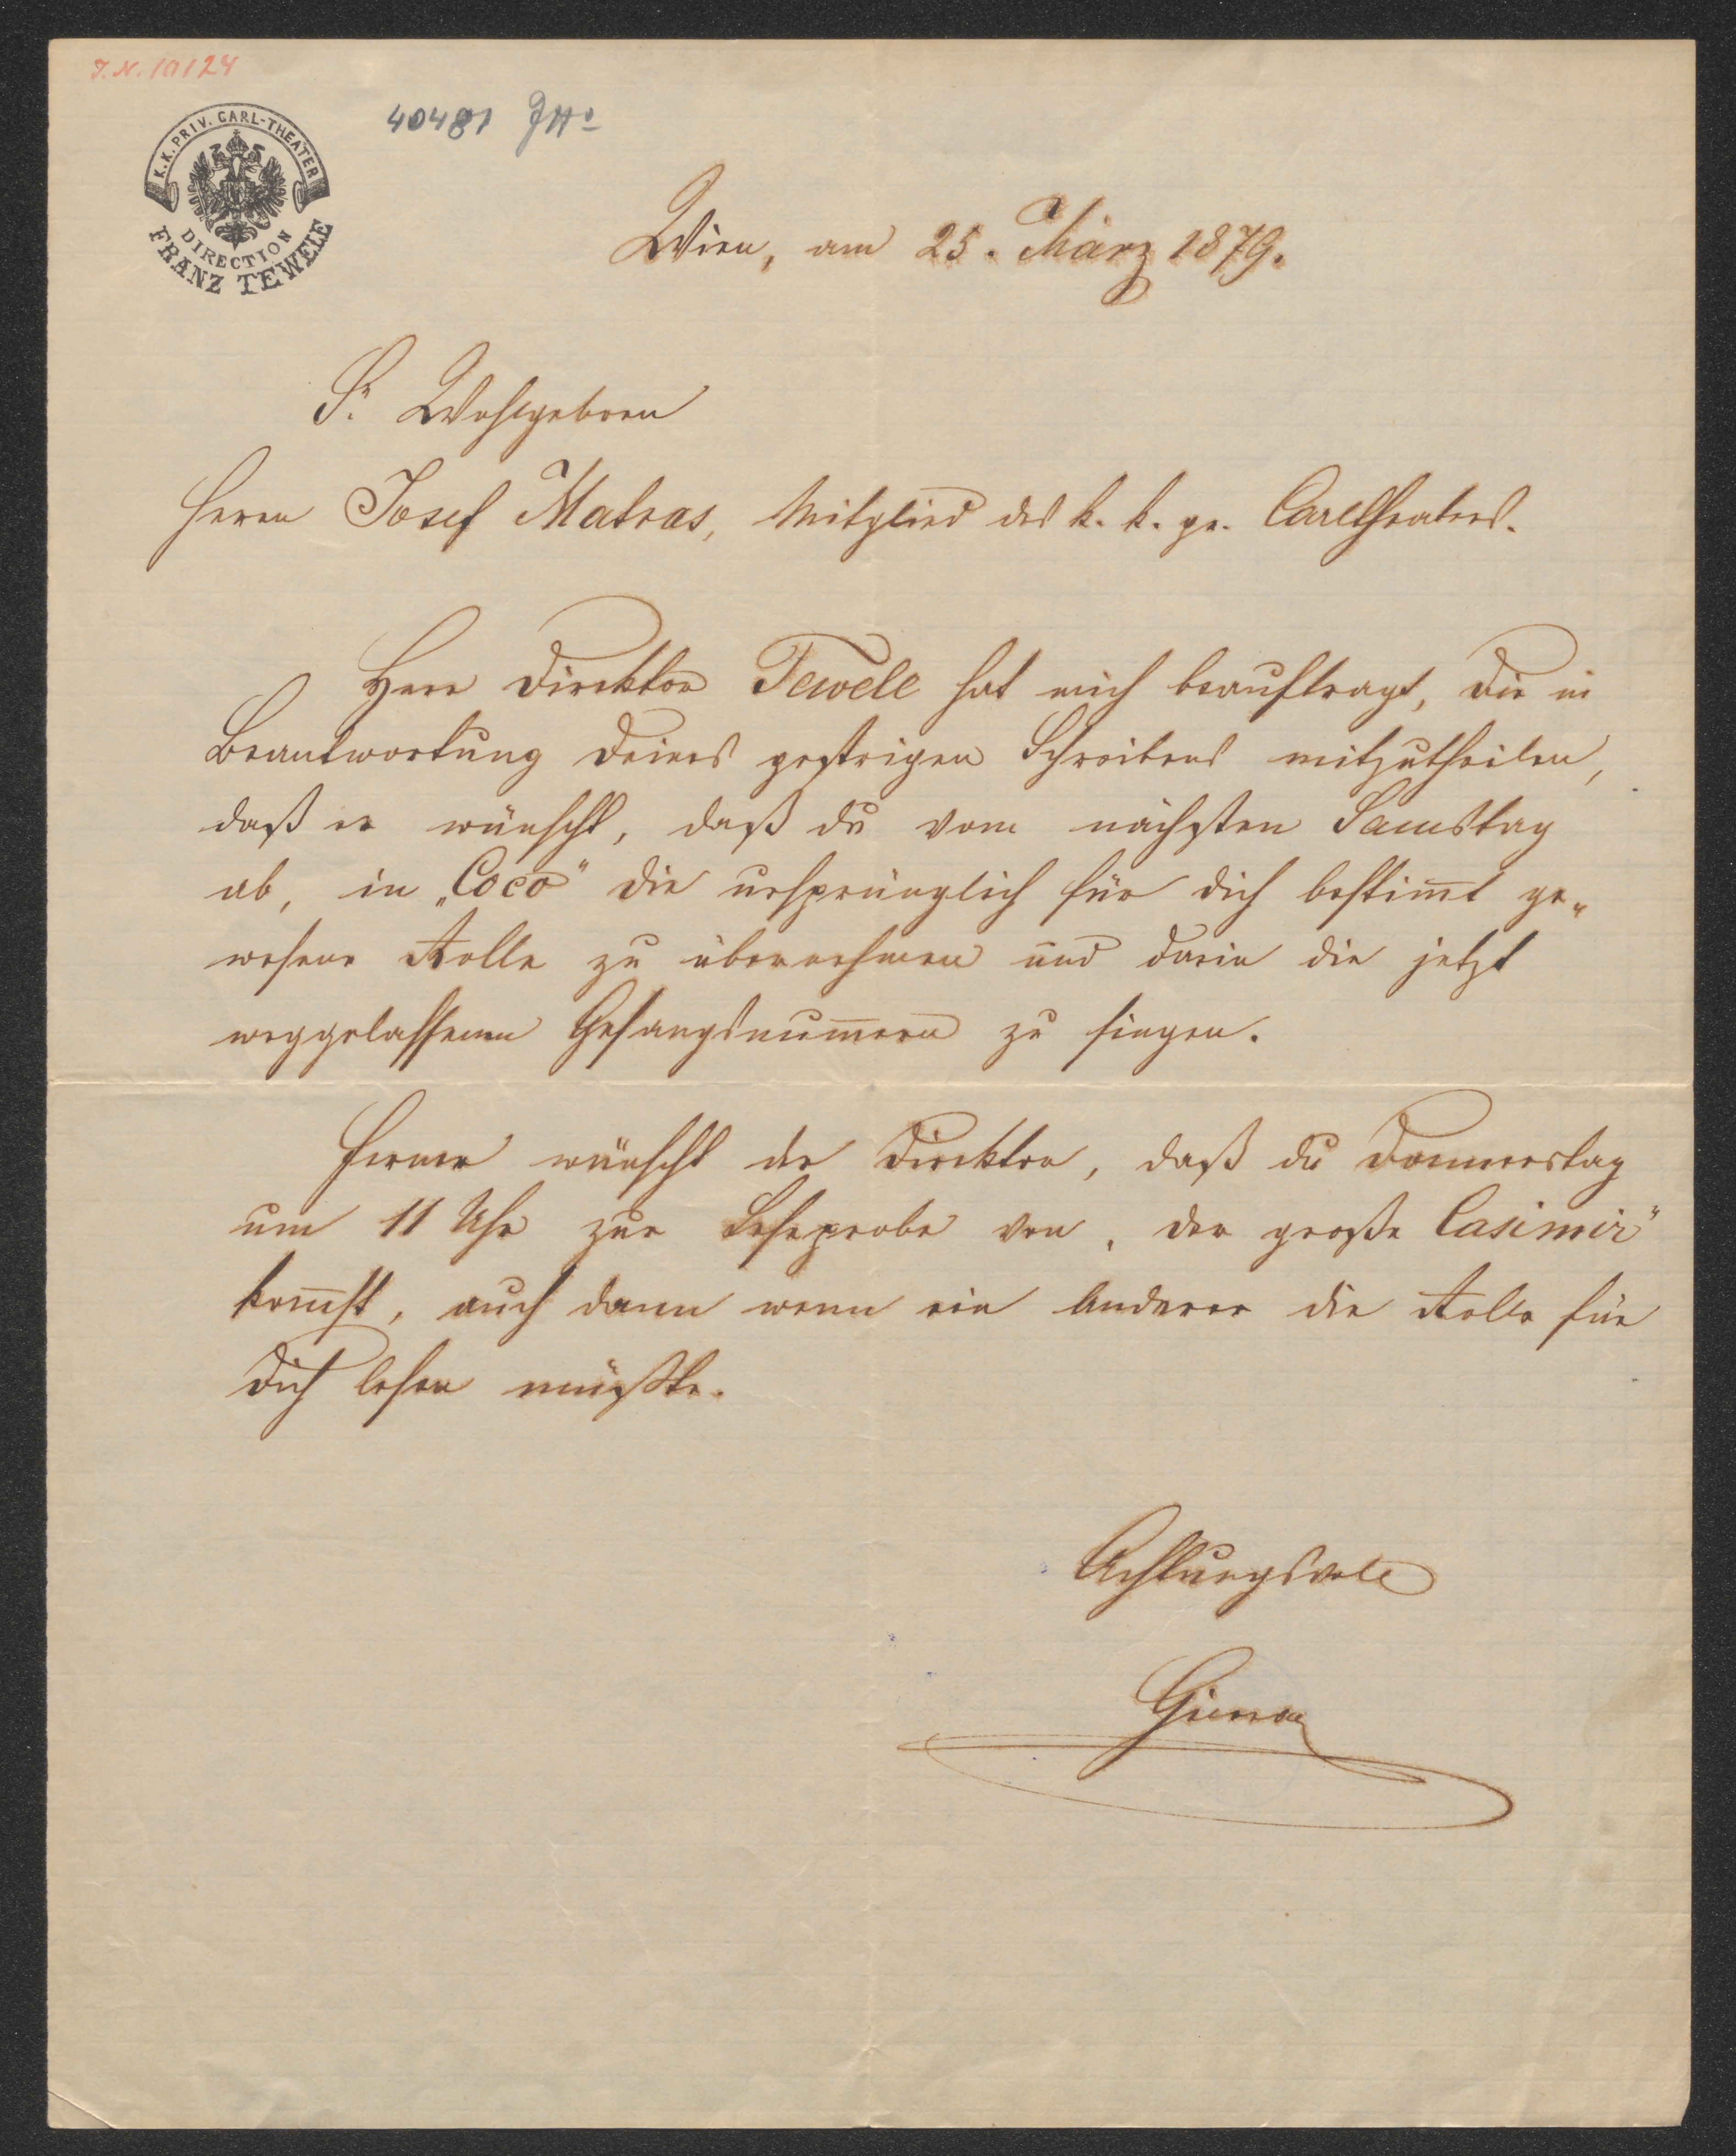 J.N. 10124
40481
K.K. PRIV. CARL-THEATER
DIRECTION
FRANZ TEWELE
Wien, am 25. März 1879.
Sr Wohlgeboren
Herrn Josef Matras, Mitglied des k. k. pr. Carltheaters.
Herr Direktor Tewele hat mich beauftragt, Dir in
Beantwortung Deines gestrigen Schreibens mitzutheilen,
daß er wünscht, daß du vom nächsten Samstag
ab, in „Coco" die ursprünglich für dich bestim̅t ge„
wesene Rolle zu übernehmen und darin die jetzt
weggelassenen Gesangsnum̅ern zu singen.
Ferner wünscht der Direktor, daß du Donnerstag
um 11 Uhr zur Leseprobe von „der große Casimir"
kom̅st, auch dann wenn ein Anderer die Rolle für
Dich lesen müßte.
Achtungsvoll